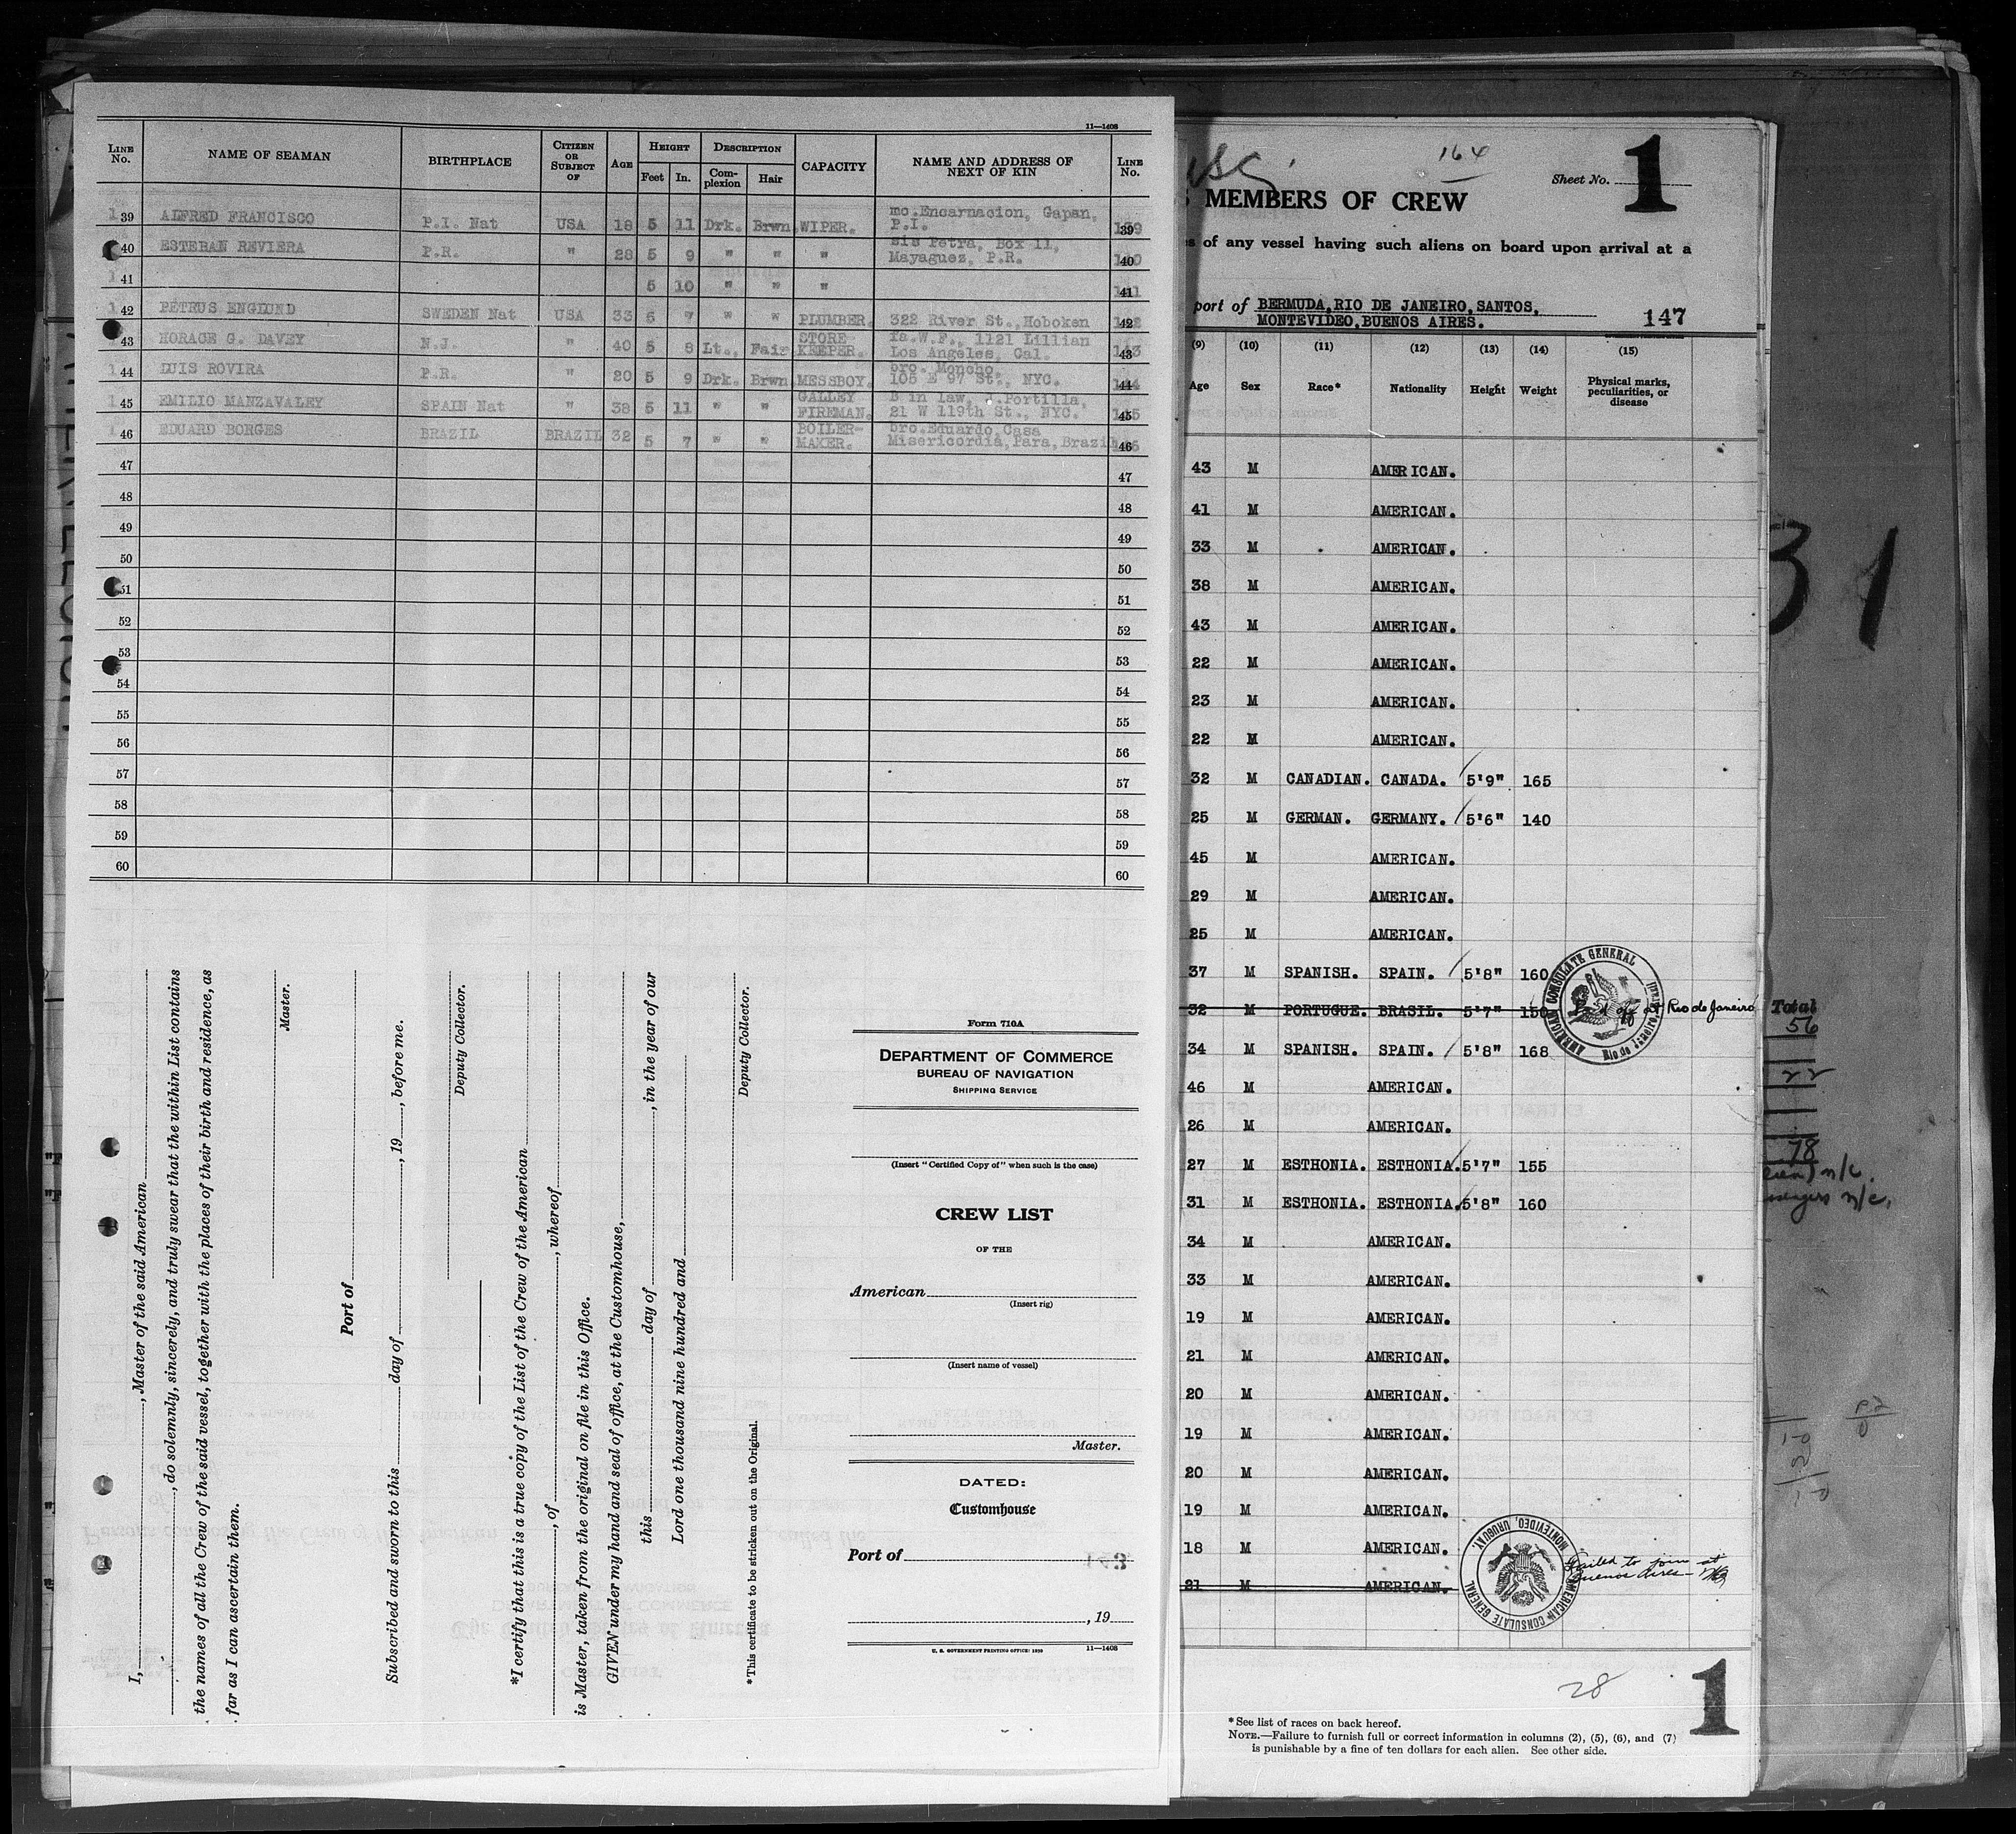 11—1408
LINE No. NAME OF SEAMAN BIRTHPLACE CITIZEN OR SUBJECT OF AGE HEIGHT Feet In. DESCRIPTION Com-plexion Hair CAPACITY NAME AND ADDRESS OF NEXT OF KIN LINE No.
39 ALFRED FRANCISCO P.I. Nat USA 18 5 11 Drk. Brwn WIPER. mo.Encarnacion, Gapan, P.I. 39
40 ESTEBAN REVIERA P.R. " 28 5 9 " " " sis Petra, Box 11, Mayaguez, P.R. 40
41 5 10 " " " 41
42 PETRUS ENGLUND SWEDEN Nat USA 33 5 7 " " PLUMBER. 322 River St., Hoboken 42
43 HORACE G. DAVEY N.J. " 40 5 8 Lt., Fair STORE KEEPER. fa.W.F., 1121 Lillian Los Angeles, Cal. 43
44 LUIS ROVIRA P.R. " 20 5 9 Drk. Brwn MESSBOY. bro. Moncho, 105 E 97 St., NYC. 44
45 EMILIO MANZAVALEY SPAIN Nat " 38 5 11 " " GALLEY FIREMAN. B in law, .Portilla, 21 W 119th St., NYC. 45
46 EDUARD BORGES BRAZIL BRAZIL 32 5 7 " " BOILER-MAKER. bro.Eduardo,Casa Misericordia,Para,Brazil 46
47 47
48 48
49 49
50 50
51 51
52 52
53 53
54 54
55 55
56 56
57 57
58 58
59 59
60 60
I, , Master of the said American
, do solemnly, sincerely, and truly swear that the within List contains
the names of all the Crew of the said vessel, together with the places of their birth and residence, as
far as I can ascertain them.
Master.
Port of
Subscribed and sworn to this day of , 19 , before me.
Deputy Collector.
*I certify that this is a true copy of the List of the Crew of the American
, of , whereof
is Master, taken from the original on file in this Office.
GIVEN under my hand and seal of office, at the Customhouse,
this day of , in the year of our
Lord one thousand nine hundred and
Deputy Collector.
*This certificate to be stricken out on the Original.
Form 710A
DEPARTMENT OF COMMERCE
BUREAU OF NAVIGATION
SHIPPING SERVICE
(Insert "Certified Copy of" when such is the case)
CREW LIST
OF THE
American
(Insert rig)
(Insert name of vessel)
Master.
DATED:
Customhouse
Port of
143
, 19
U. S. GOVERNMENT PRINTING OFFICE: 1930 11—1408
164
Sheet No. 1
MEMBERS OF CREW
of any vessel having such aliens on board upon arrival at a
port of BERMUDA,RIO DE JANEIRO,SANTOS,
MONTEVIDEO,BUENOS AIRES.
147
(9) (10) (11) (12) (13) (14) (15)
Age Sex Race* Nationality Height Weight Physical marks, peculiarities, or disease
43 M AMERICAN.
41 M AMERICAN.
33 M AMERICAN.
38 M AMERICAN.
43 M AMERICAN.
22 M AMERICAN.
23 M AMERICAN.
22 M AMERICAN.
32 M CANADIAN. CANADA. 5'9" 165
25 M GERMAN. GERMANY. 5'6" 140
45 M AMERICAN.
29 M AMERICAN.
25 M AMERICAN.
37 M SPANISH. SPAIN. 5'8" 160
32 M PORTUGUE. BRASIL. 5'7" 150 at Rio de Janeiro
34 M SPANISH. SPAIN. 5'8" 168
46 M AMERICAN.
26 M AMERICAN.
27 M ESTHONIA. ESTHONIA. 5'7" 155
31 M ESTHONIA. ESTHONIA. 5'8" 160
34 M AMERICAN.
33 M AMERICAN.
19 M AMERICAN.
21 M AMERICAN.
20 M AMERICAN.
19 M AMERICAN.
20 M AMERICAN.
19 M AMERICAN.
18 M AMERICAN.
21 M AMERICAN. Failed to join at Buenos Aires
AMERICAN CONSULATE GENERAL Rio de Janeiro, Brazil
AMERICAN CONSULATE GENERAL MONTEVIDEO, URUGUAY.
28
1
*See list of races on back hereof.
NOTE.—Failure to furnish full or correct information in columns (2), (5), (6), and (7)
is punishable by a fine of ten dollars for each alien. See other side.
31
Total
56
22
78
n/c.
n/c.